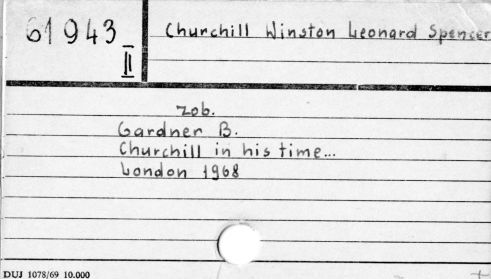 61943 Churchill Winston Leonard Spencer
II
zob.
Gardner B.
Churchill in his time...
London 1968
DUJ 1078/69 10.000